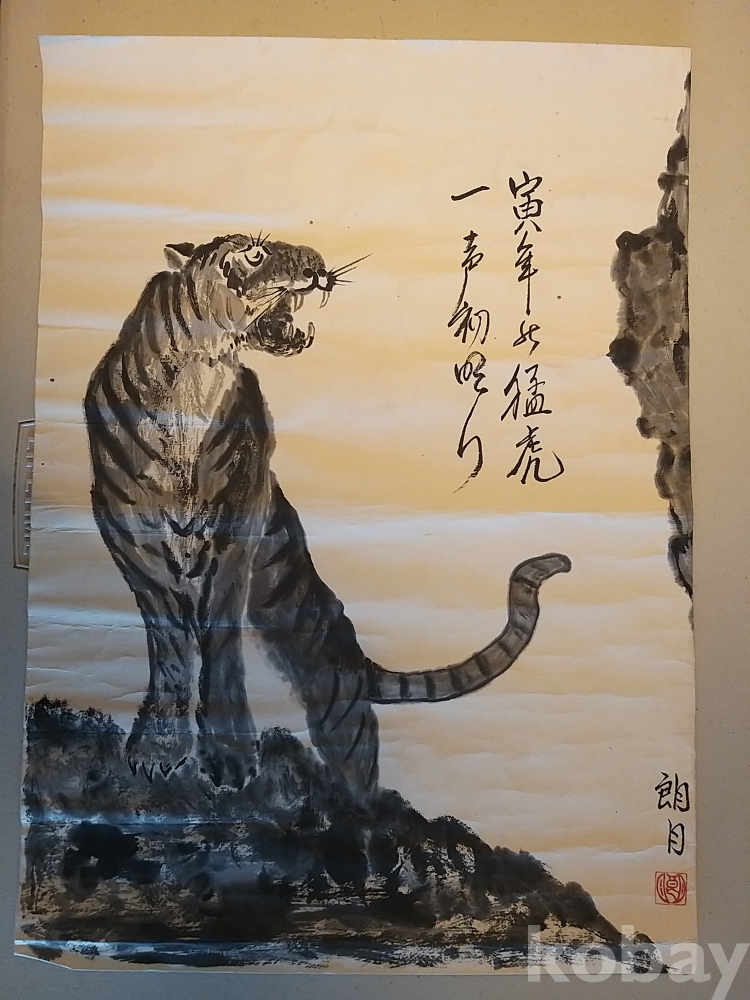 寅年猛虎
一声初明り
朗月
kobay